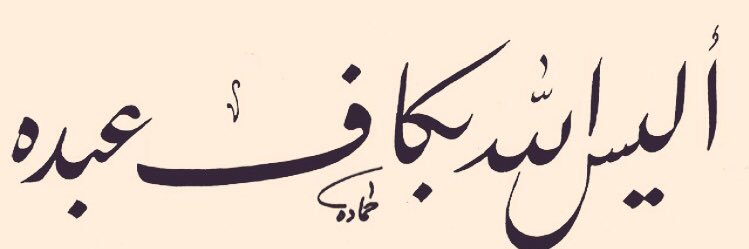 أليس الله بكاف عبده
حماده